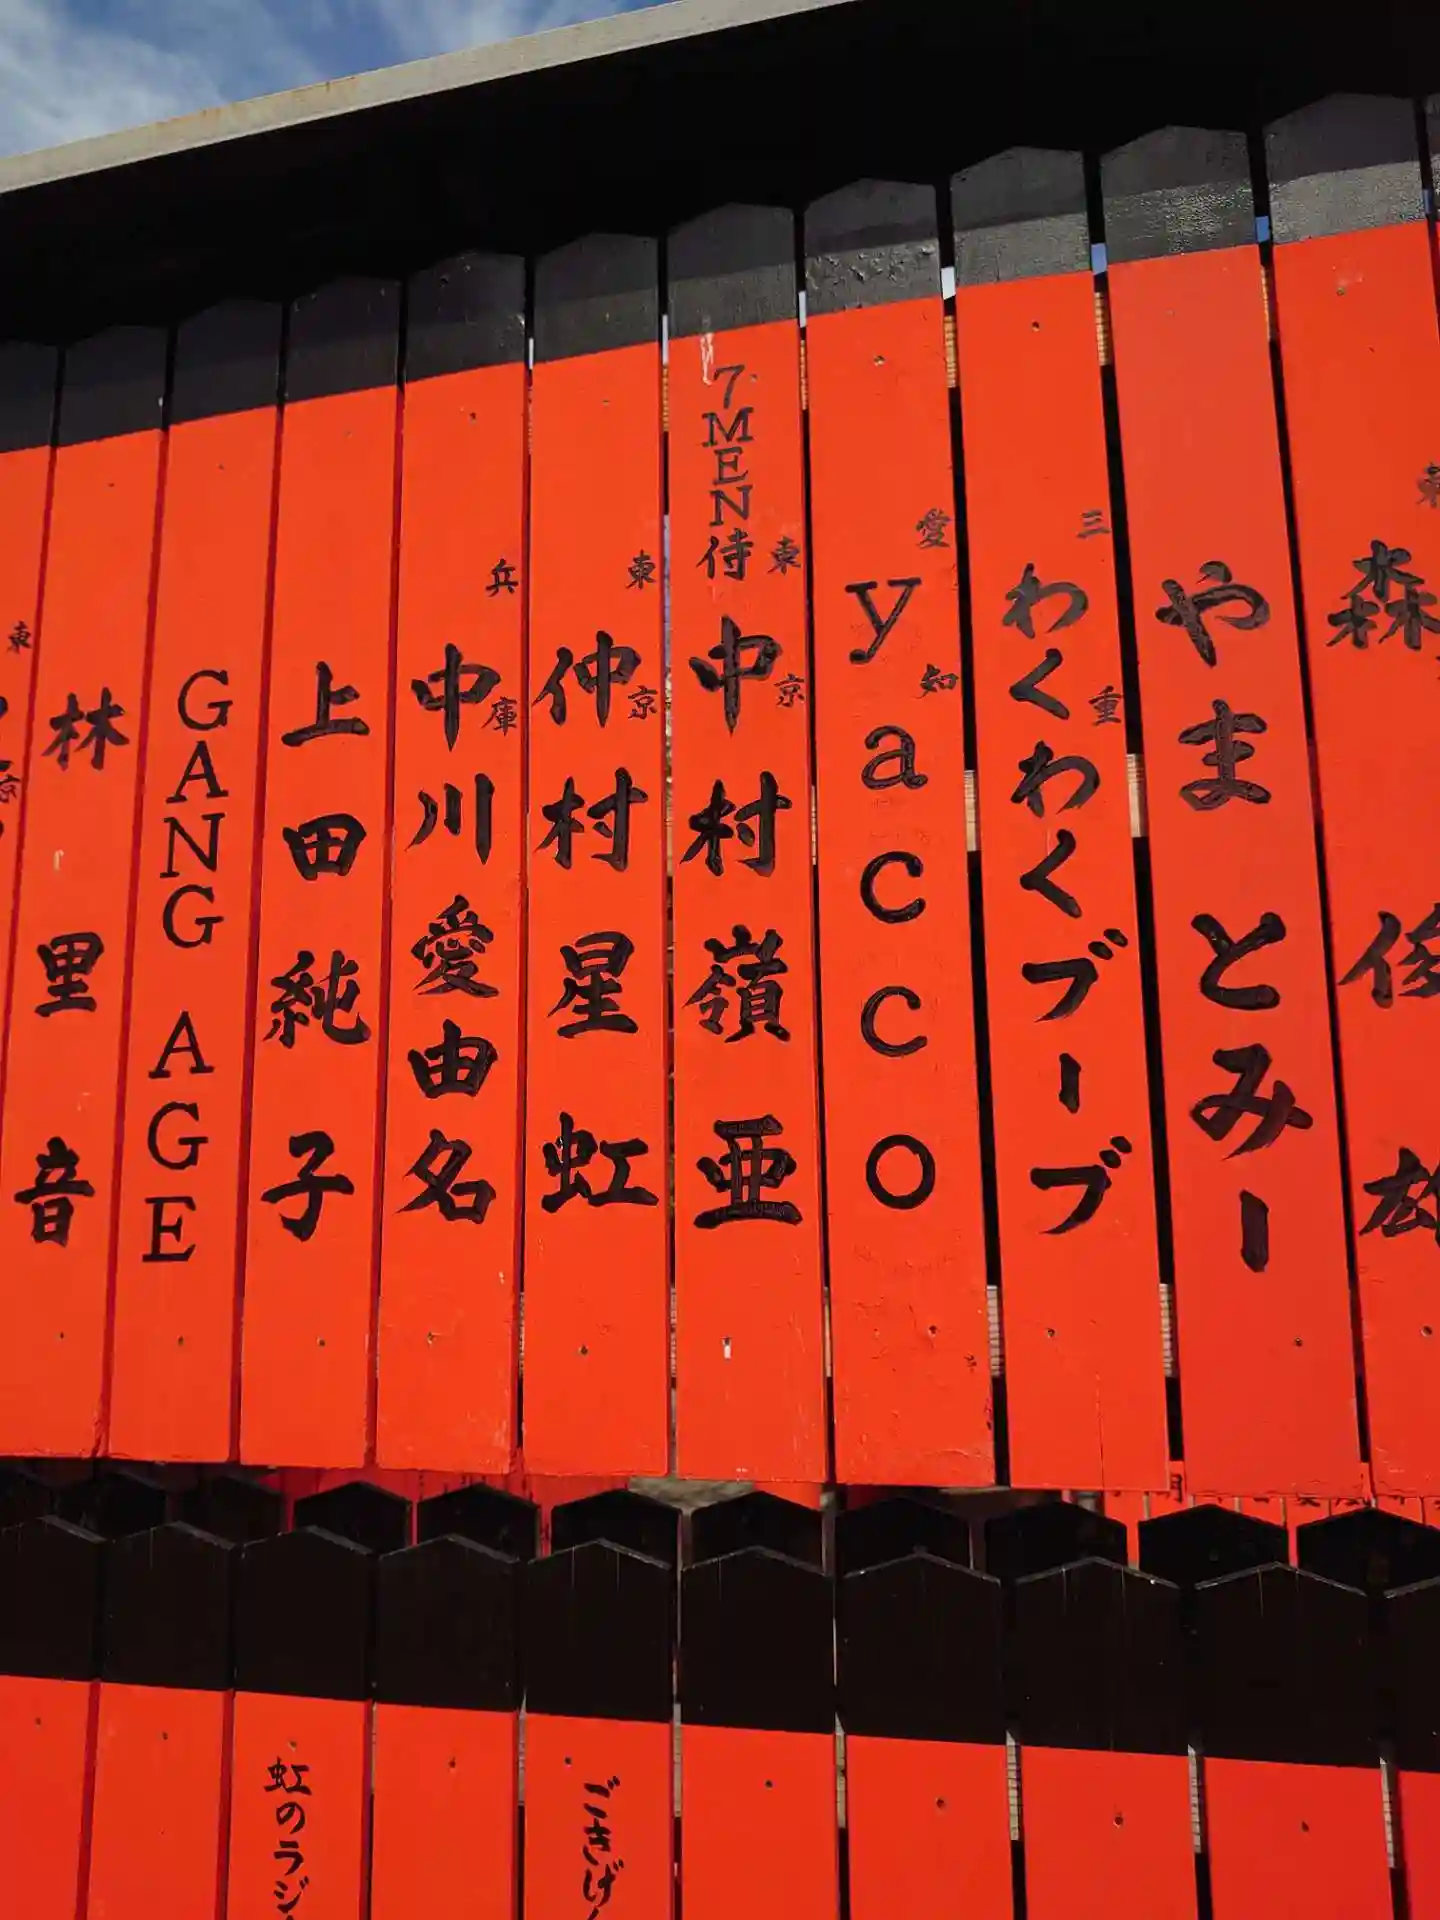 森俊雄
やまとみー
三重
わくわくブーブ
愛知
yacco
東京
7MEN侍
中村嶺亜
東京
仲村星虹
兵庫
中川愛由名
上田純子
GANG AGE
林里音
東京
ごきげ
虹のラジ